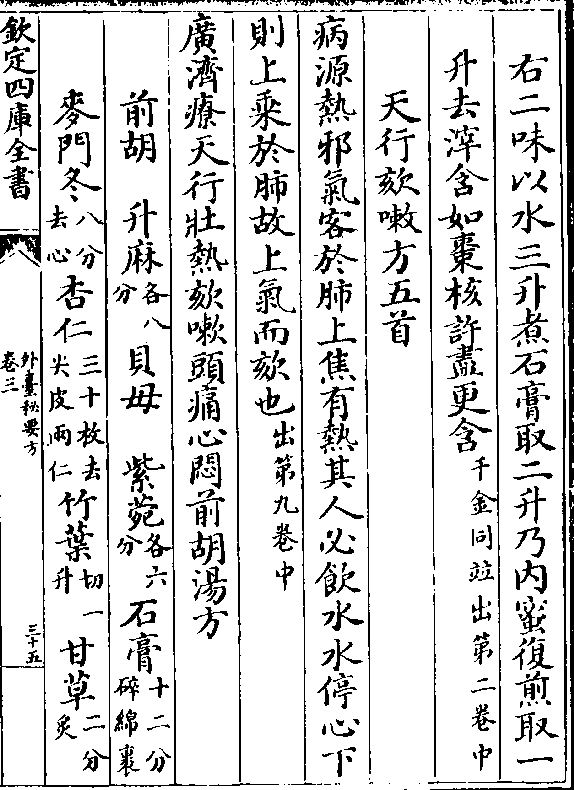 右二味以水三升煮石膏取二升乃内蜜復煎取一
升去滓含如棗核許盡更含千金同竝出第二卷中
天行欬嗽方五首
病源熱邪氣客於肺上焦有熱其人必飲水水停心下
則上乘於肺故上氣而欬也出第九卷中
廣濟療天行壯熱欬嗽頭痛心悶前胡湯方
前胡 升麻各八分 貝母 紫菀各六分 石膏十二分碎綿裹
麥門冬八分去心 杏仁三十枚去尖皮兩仁 竹葉切一升 甘草二分炙
欽定四庫全書
外臺秘要方
卷三
三十五